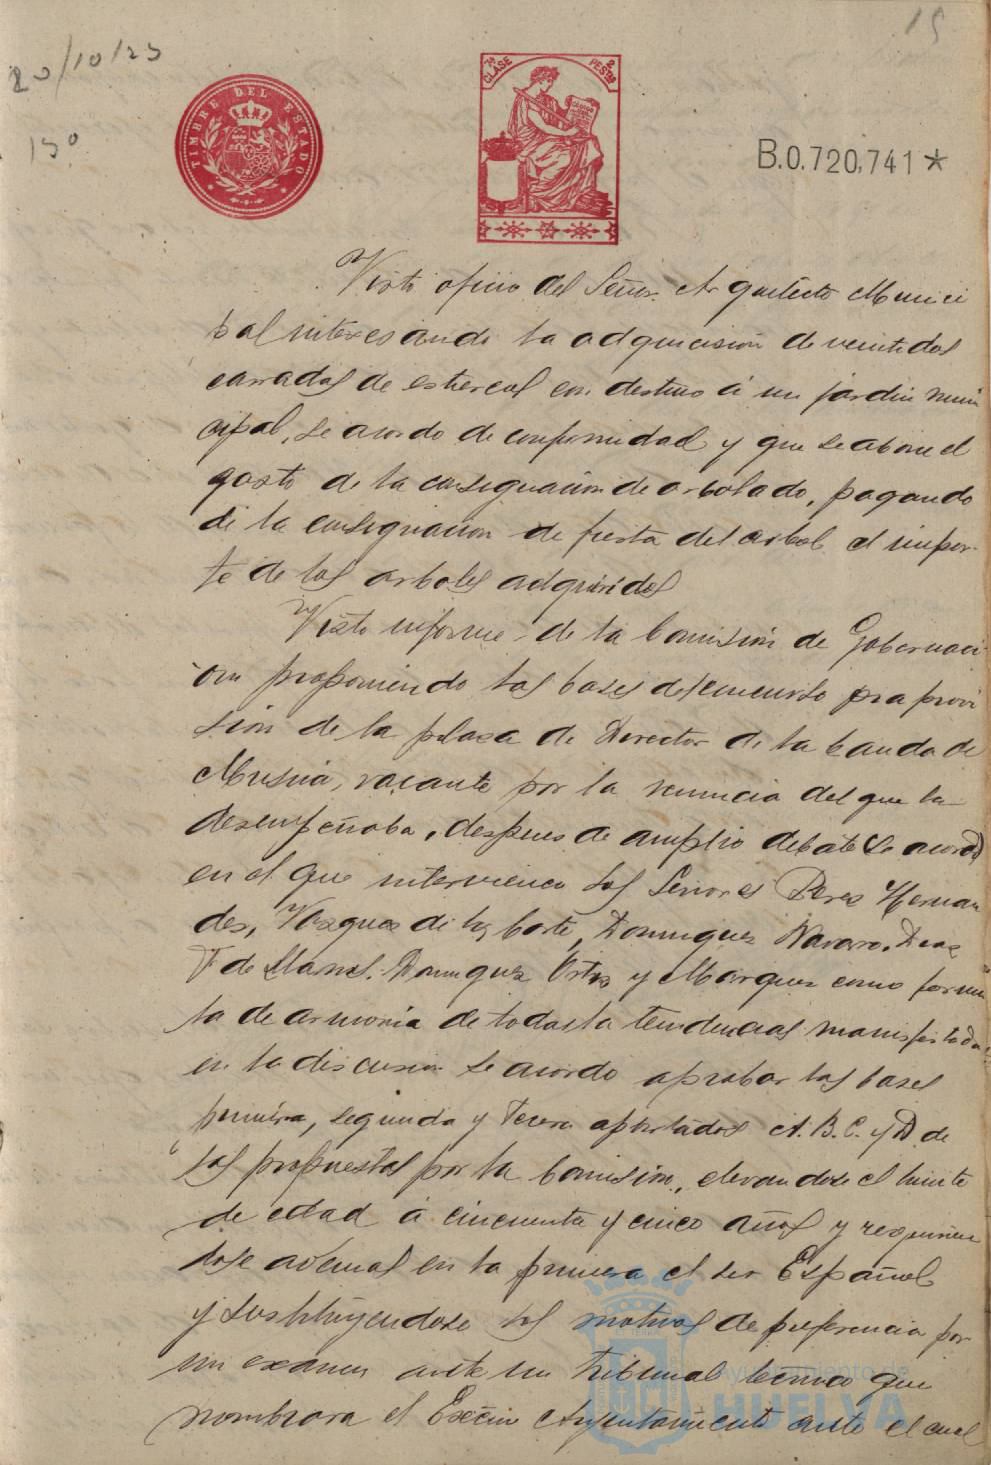 20/10/23
15
15º
TIMBRE DEL ESTADO
7ª CLASE
2 PESTAS
B.0.720,741*
Visto oficio del Señor Arquitecto Munici
pal interesando la adquicisión de veintidos
carradas de estiercol con destino á un jardin muni
cipal, se acordo de conformidad y que se abone el
gasto de la consignación de arbolado, pagando
de la consignacion de fiesta del arbol el impor-
te de los arboles adquiridos
Visto informe de la Comisión de Gobernaci
on proponiendo las bases del concurso pra provi
sión de la plaza de Director de la banda de
Musica, vacante por la renuncia del que la
desempeñaba, despues de amplio debate se acordó
en el que intervienen los Señores Perez Hernan
dez, Vazquez de la Corte, Dominguez Navarro, Diaz
F de Llanos. Dominguez Ortiz y Marquez como formu
la de armonia de todas la tendencias manifestadas
en la discusion se acordo aprobar las bases
primera, segunda y tercera apartados A. B. C. y D de
las propuestas por la Comisión, elevandose el limite
de edad á cincuenta y cinco años y requirien
dose ademas en la primera el ser Español
y sustituyendose los motivos de preferencia por
un examen ante un tribunal tecnico que
nombrara el Excmo Ayuntamiento ante el cual
Ayuntamiento de
HUELVA